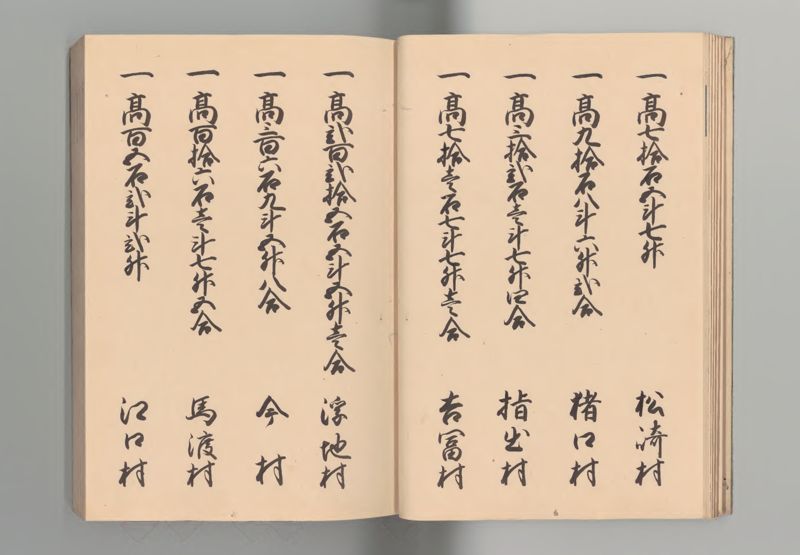 一 高七拾石五斗七升 松崎村
一 高九拾石八斗六升弐合 猪口村
一 高三拾弐石壱斗七升四合 指出村
一 高七拾壱石七斗七升壱合 吉冨村
一 高弐百弐拾五石五斗五升壱合 浮地村
一 高三百六石九斗五升八合 今村
一 高百拾六石壱斗七升五合 馬渡村
一 高百五石弐斗弐升 江口村